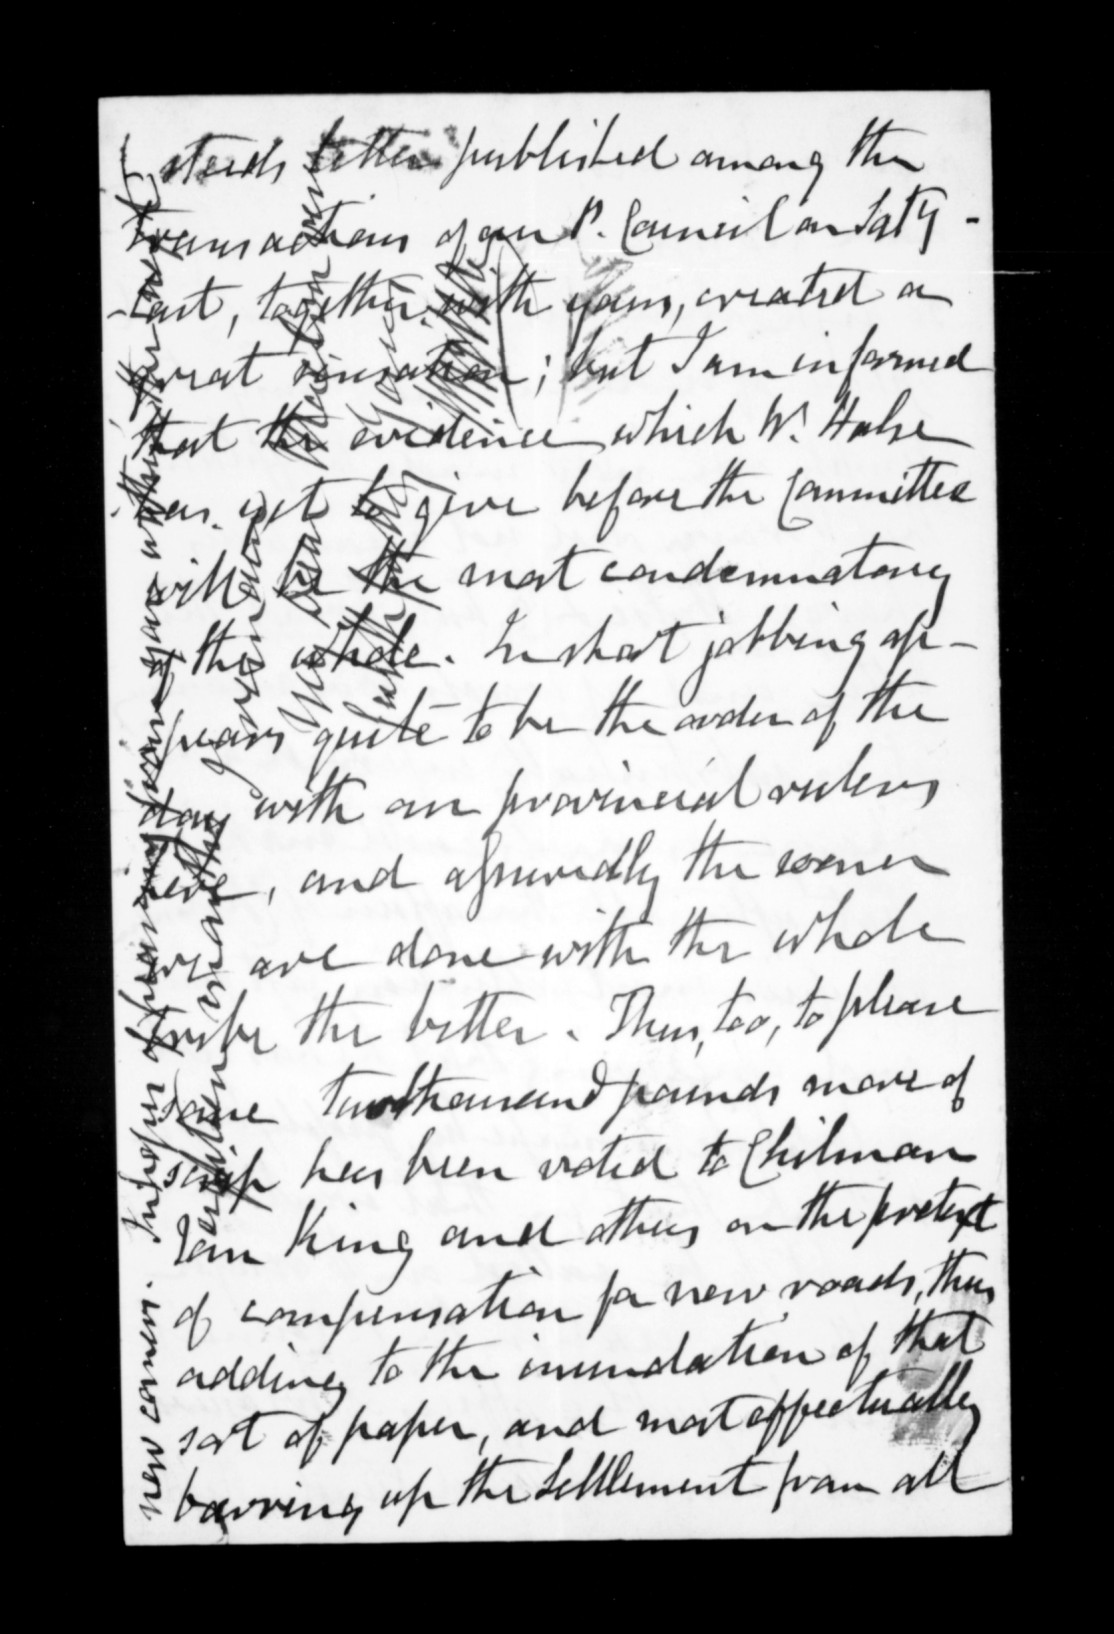 steeds letter published among the
transactions of our P. Council on Saty
last, together with yours, created a
great sensation; but I am informed
that the evidence which Wm. Halse
has yet to give before the Committee
will be the most condemnatory
of the whole. In short jobbing ap-
pears quite to be the order of the
day with our provincial rulers
here, and assuredly the sooner
we are done with the whole
tribe the better. Then, too, to please
some two thousand pounds more of
scrip has been voted to Chilman
Tom King and others on the pretext
of compensation for new roads, thus
adding to the inundation of that
sort of paper, and most effectually
barring up the Settlement from all
new comers. In hopes of hearing from you within the next
written
I remain
My dear
Yours